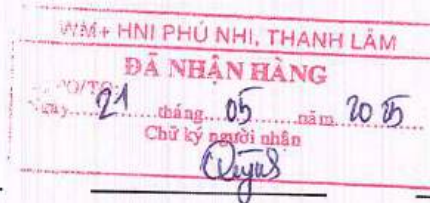 WM+ HNI PHÚ NHI, THANH LÂM
ĐÃ NHẬN HÀNG
PO/TO
Ngày 21 tháng 05 năm 2025
Chữ ký người nhận
Quỳnh